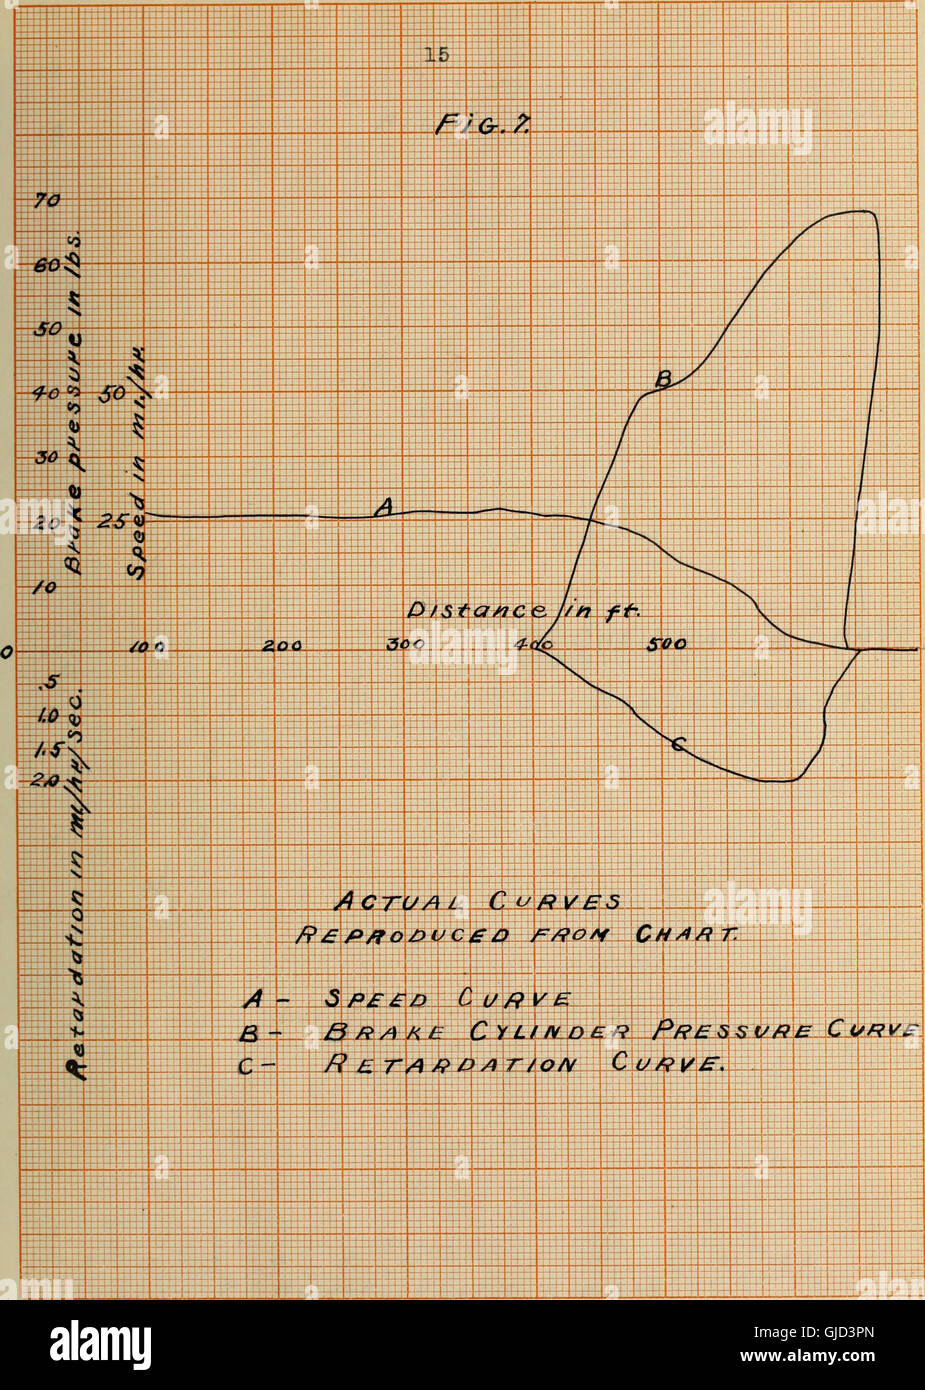 15
Fig. 7.
70
60
50
40
30
20
10
0
.5
1.0
1.5
2.0
Brake pressure in lbs.
50
25
Speed in mi./hr.
Retardation in mi/hr/sec.
A
B
C
Distance in ft.
100 200 300 400 500
ACTUAL CURVES
REPRODUCED FROM CHART.
A - SPEED CURVE
B - BRAKE CYLINDER PRESSURE CURVE
C - RETARDATION CURVE.
alamy
a
alamy
Image ID: GJD3PN
www.alamy.com